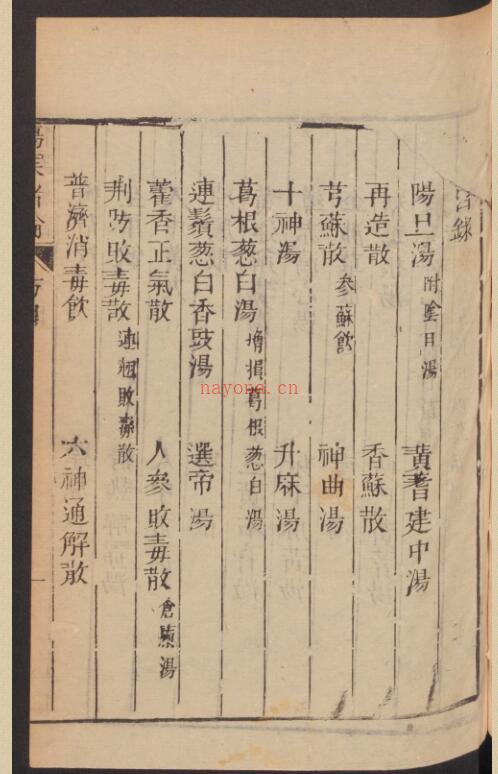 錄
陽旦湯 附陰旦湯 黃耆建中湯
再造散 香蘇散
芎蘇散 參蘇飲 神曲湯
十神湯 升麻湯
葛根葱白湯 增損葛根葱白湯
連鬚葱白香豉湯 選帝湯
藿香正氣散 人參敗毒散 倉廩湯
荆防敗毒散 連翹敗毒散
普濟消毒飲 六神通解散
nayona.cn